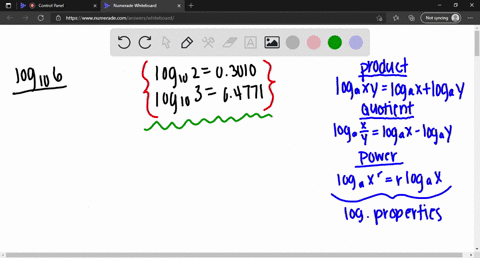 Control Panel
Numerade Whiteboard
https://www.numerade.com/answers/whiteboard/
Not syncing
log₁₀6
log₁₀2=0.3010
log₁₀3=0.4771
product
logₐxy=logₐx+logₐy
quotient
logₐx/y=logₐx-logₐy
power
logₐxʳ=r logₐx
log. properties